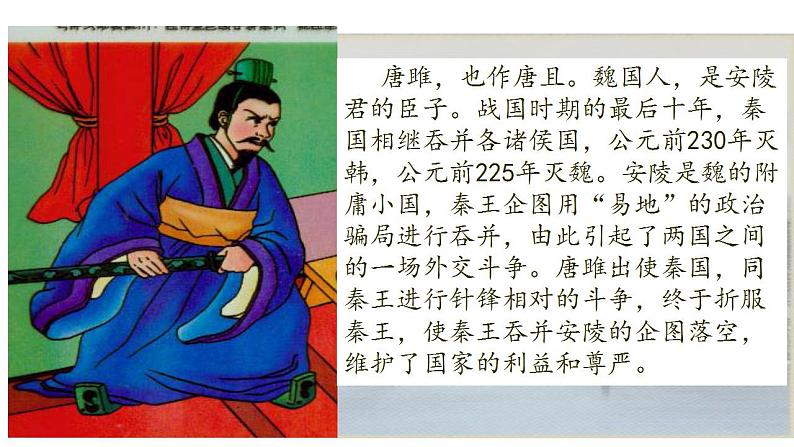 唐雎，也作唐且。魏国人，是安陵
君的臣子。战国时期的最后十年，秦
国相继吞并各诸侯国，公元前230年灭
韩，公元前225年灭魏。安陵是魏的附
庸小国，秦王企图用“易地”的政治
骗局进行吞并，由此引起了两国之间
的一场外交斗争。唐雎出使秦国，同
秦王进行针锋相对的斗争，终于折服
秦王，使秦王吞并安陵的企图落空，
维护了国家的利益和尊严。